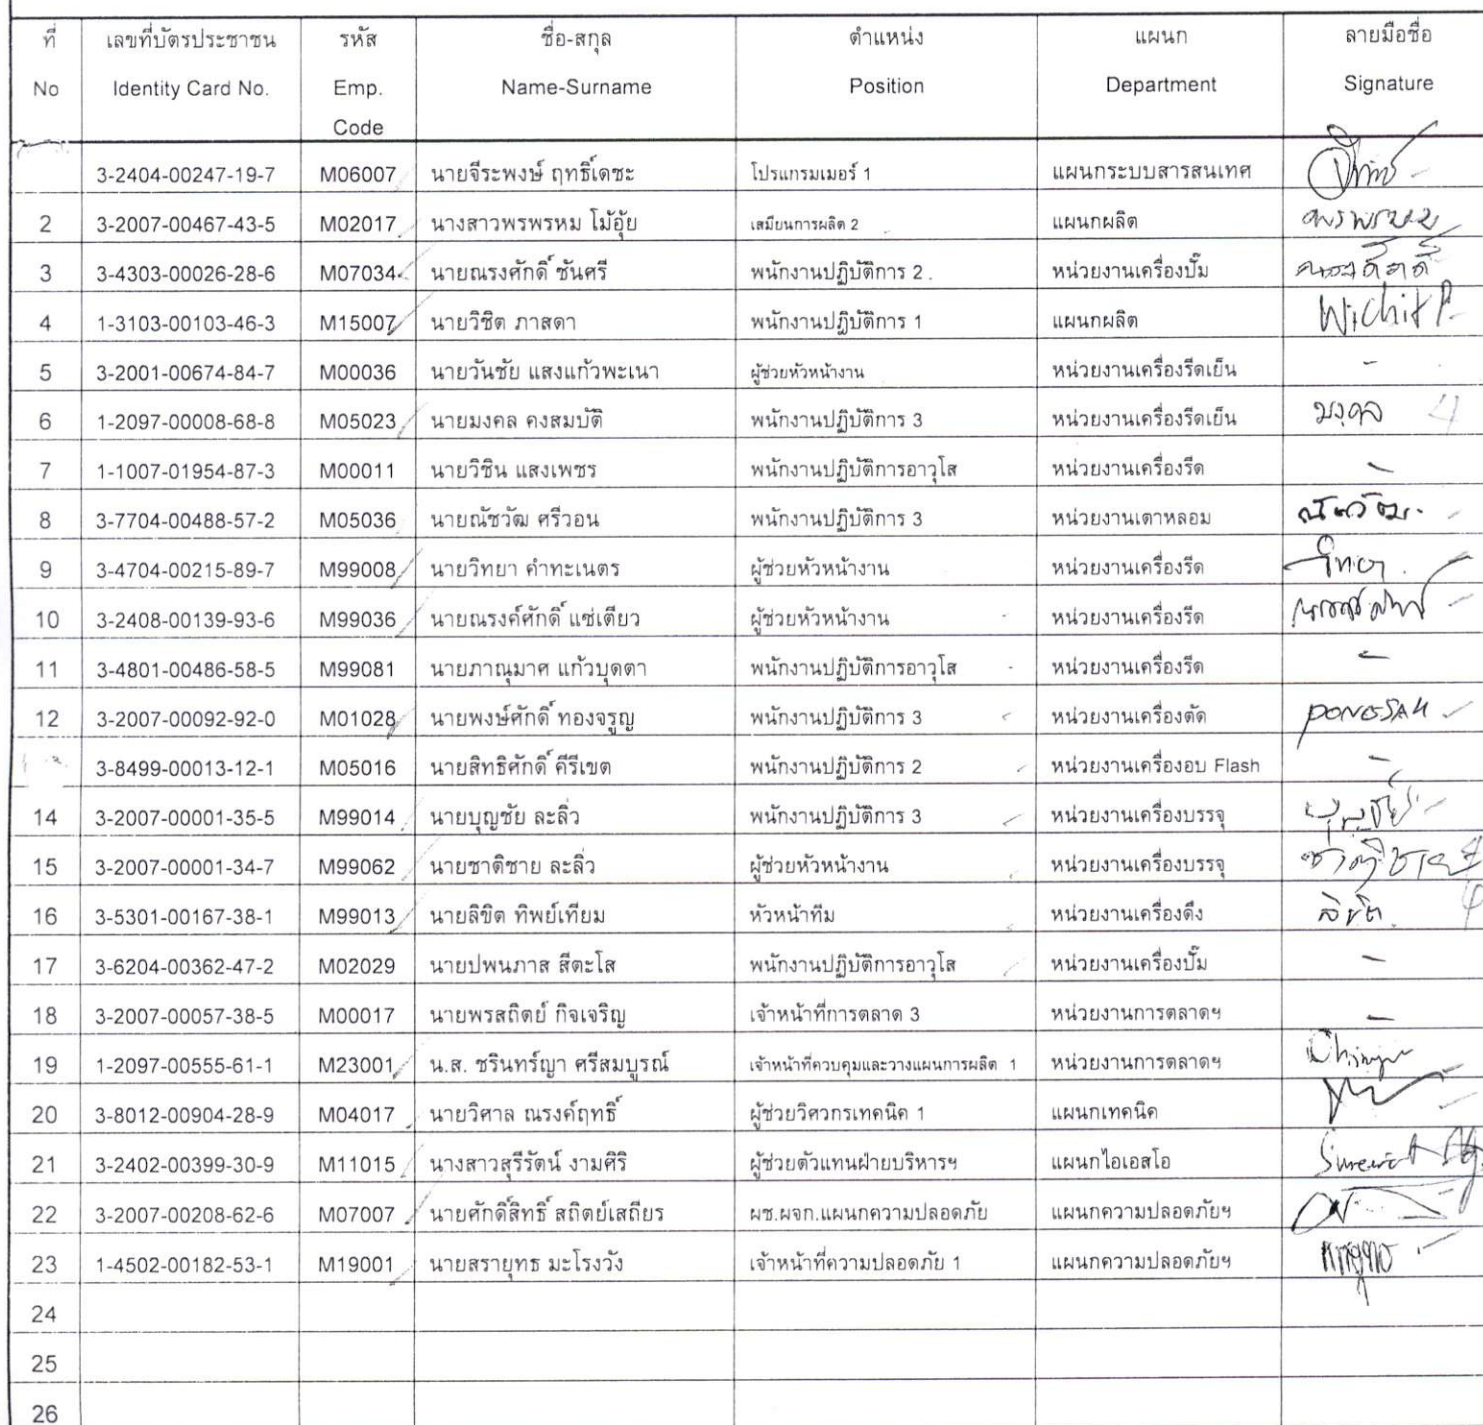 ที่ เลขที่บัตรประชาชน รหัส ชื่อ-สกุล ตำแหน่ง แผนก ลายมือชื่อ
No Identity Card No. Emp. Name-Surname Position Department Signature
Code
3-2404-00247-19-7 M06007 นายจีระพงษ์ ฤทธิ์เดชะ โปรแกรมเมอร์ 1 แผนกระบบสารสนเทศ
2 3-2007-00467-43-5 M02017 นางสาวพรพรหม โม้อุ้ย เสมียนการผลิต 2 แผนกผลิต พรพรหม
3 3-4303-00026-28-6 M07034 นายณรงศักดิ์ ชันศรี พนักงานปฏิบัติการ 2 หน่วยงานเครื่องปั๊ม ณรงศักดิ์
4 1-3103-00103-46-3 M15007 นายวิชิต ภาสดา พนักงานปฏิบัติการ 1 แผนกผลิต Wichit P.
5 3-2001-00674-84-7 M00036 นายวันชัย แสงแก้วพะเนา ผู้ช่วยหัวหน้างาน หน่วยงานเครื่องรีดเย็น -
6 1-2097-00008-68-8 M05023 นายมงคล คงสมบัติ พนักงานปฏิบัติการ 3 หน่วยงานเครื่องรีดเย็น มงคล
7 1-1007-01954-87-3 M00011 นายวิชิน แสงเพชร พนักงานปฏิบัติการอาวุโส หน่วยงานเครื่องรีด -
8 3-7704-00488-57-2 M05036 นายณัชวัฒ ศรีวอน พนักงานปฏิบัติการ 3 หน่วยงานเตาหลอม ณัชวัฒ
9 3-4704-00215-89-7 M99008 นายวิทยา คำทะเนตร ผู้ช่วยหัวหน้างาน หน่วยงานเครื่องรีด วิทยา
10 3-2408-00139-93-6 M99036 นายณรงค์ศักดิ์ แซ่เตียว ผู้ช่วยหัวหน้างาน หน่วยงานเครื่องรีด
11 3-4801-00486-58-5 M99081 นายภาณุมาศ แก้วบุดตา พนักงานปฏิบัติการอาวุโส หน่วยงานเครื่องรีด -
12 3-2007-00092-92-0 M01028 นายพงษ์ศักดิ์ ทองจรูญ พนักงานปฏิบัติการ 3 หน่วยงานเครื่องตัด PONGSAK
3-8499-00013-12-1 M05016 นายสิทธิศักดิ์ คีรีเขต พนักงานปฏิบัติการ 2 หน่วยงานเครื่องอบ Flash -
14 3-2007-00001-35-5 M99014 นายบุญชัย ละลิ่ว พนักงานปฏิบัติการ 3 หน่วยงานเครื่องบรรจุ บุญชัย
15 3-2007-00001-34-7 M99062 นายชาติชาย ละลิ่ว ผู้ช่วยหัวหน้างาน หน่วยงานเครื่องบรรจุ ชาติชาย
16 3-5301-00167-38-1 M99013 นายลิขิต ทิพย์เทียม หัวหน้าทีม หน่วยงานเครื่องดึง ลิขิต
17 3-6204-00362-47-2 M02029 นายปพนภาส สีตะโส พนักงานปฏิบัติการอาวุโส หน่วยงานเครื่องปั๊ม -
18 3-2007-00057-38-5 M00017 นายพรสถิตย์ กิจเจริญ เจ้าหน้าที่การตลาด 3 หน่วยงานการตลาดฯ -
19 1-2097-00555-61-1 M23001 น.ส. ชรินทร์ญา ศรีสมบูรณ์ เจ้าหน้าที่ควบคุมและวางแผนการผลิต 1 หน่วยงานการตลาดฯ
20 3-8012-00904-28-9 M04017 นายวิศาล ณรงค์ฤทธิ์ ผู้ช่วยวิศวกรเทคนิค 1 แผนกเทคนิค
21 3-2402-00399-30-9 M11015 นางสาวสุรีรัตน์ งามศิริ ผู้ช่วยตัวแทนฝ่ายบริหารฯ แผนกไอเอสโอ
22 3-2007-00208-62-6 M07007 นายศักดิ์สิทธิ์ สถิตย์เสถียร ผช.ผจก.แผนกความปลอดภัย แผนกความปลอดภัยฯ
23 1-4502-00182-53-1 M19001 นายสรายุทธ มะโรงวัง เจ้าหน้าที่ความปลอดภัย 1 แผนกความปลอดภัยฯ
24
25
26